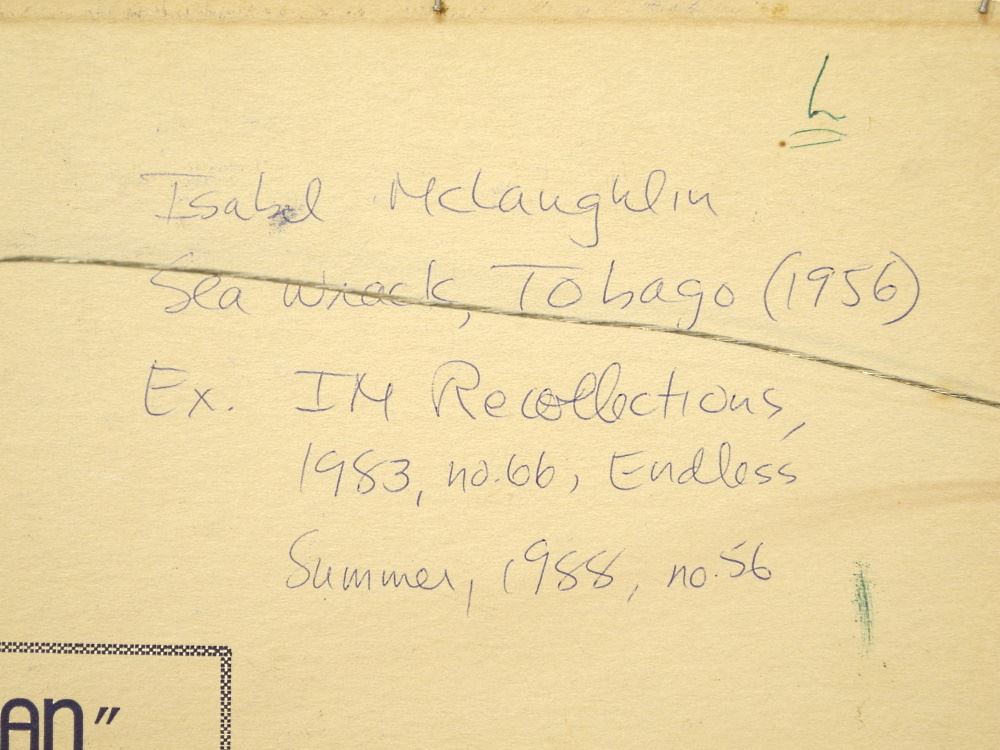 h
Isabel McLaughlin
Sea Wrack, Tobago (1956)
Ex. IM Recollections,
1983, no.66, Endless
Summer, 1988, no.56
AN"